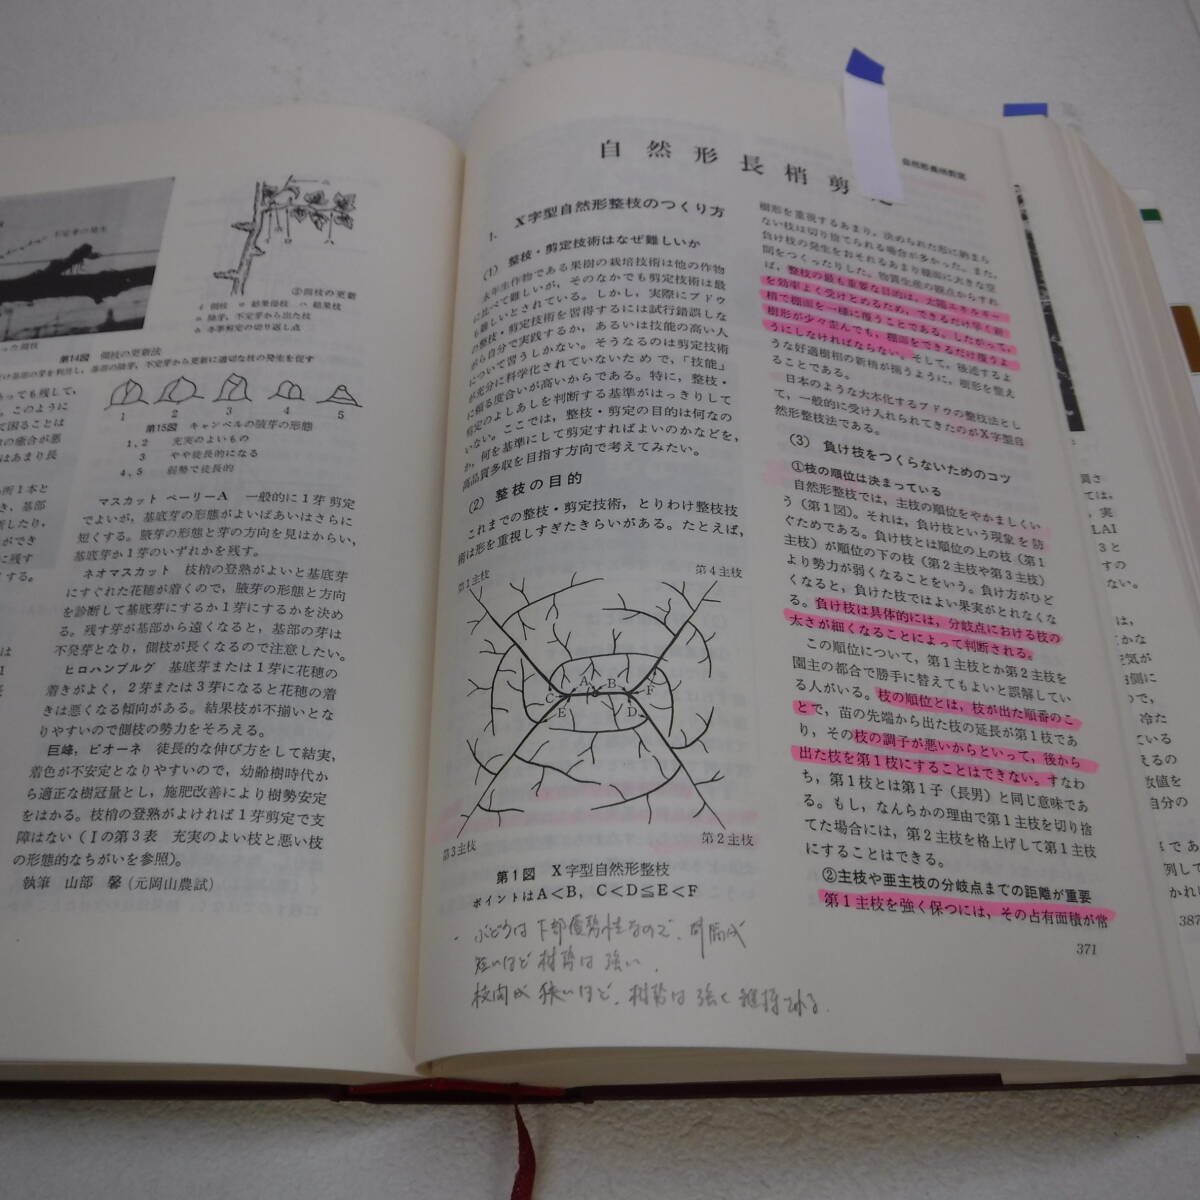 不定芽の発生
②側枝の更新
イ 側枝 ロ 結果母枝 ハ 結果枝
ニ 陰芽，不定芽から出た枝
ホ 冬季剪定の切り返し点
第14図 側枝の更新法
1 2 3 4 5
第15図 キャンベルの腋芽の形態
1，2 充実のよいもの
3 やや徒長的になる
4，5 弱勢で徒長的
マスカット ベーリーA 一般的に1芽剪定
でよいが，基底芽の形態がよいばあいはさらに
短くする。腋芽の形態と芽の方向を見はからい，
基底芽か1芽のいずれかを残す。
ネオマスカット 枝梢の登熟がよいと基底芽
にすぐれた花穂が着くので，腋芽の形態と方向
を診断して基底芽にするか1芽にするかを決め
る。残す芽が基部から遠くなると，基部の芽は
不発芽となり，側枝が長くなるので注意したい。
ヒロハンブルグ 基底芽または1芽に花穂の
着きがよく，2芽または3芽になると花穂の着
きは悪くなる傾向がある。結果枝が不揃いとな
りやすいので側枝の勢力をそろえる。
巨峰，ピオーネ 徒長的な伸び方をして結実，
着色が不安定となりやすいので，幼齢樹時代か
ら適正な樹冠量とし，施肥改善により樹勢安定
をはかる。枝梢の登熟がよければ1芽剪定で支
障はない（Ⅰの第3表 充実のよい枝と悪い枝
の形態的なちがいを参照）。
執筆 山部 馨（元岡山農試）
自然形長梢剪定
自然形長梢剪
1. X字型自然形整枝のつくり方
(1) 整枝・剪定技術はなぜ難しいか
永年生作物である果樹の栽培技術は他の作物
に比べて難しいが，そのなかでも剪定技術は最
も難しいとされている。しかし，実際にブドウ
の整枝・剪定技術を習得するには試行錯誤しな
がら自分で実践するか，あるいは技能の高い人
について習うしかない。そうなるのは剪定技術
が充分に科学化されていないためで，「技能」
に頼る度合いが高いからである。特に，整枝・
剪定のよしあしを判断する基準がはっきりして
いない。ここでは，整枝・剪定の目的は何なの
か，何を基準にして剪定すればよいのかなどを，
高品質多収を目指す方向で考えてみたい。
(2) 整枝の目的
これまでの整枝・剪定技術，とりわけ整枝技
術は形を重視しすぎたきらいがある。たとえば，
第1主枝
第4主枝
A B C D E F
第3主枝
第2主枝
第1図 X字型自然形整枝
ポイントはA＜B，C＜D≦E＜F
樹形を重視するあまり，決められた形に納まら
ない枝は切り捨てられる場合が多かった。また，
負け枝の発生をおそれるあまり棚面に大きな空
間をつくったりした。物質生産の観点からすれ
ば，整枝の最も重要な目的は，太陽エネルギー
を効率よく受けとめるため，できるだけ早く新
梢で棚面を一様に覆うことである。したがって，
樹形が少々歪んでも，棚面をできるだけ覆うよ
うにしなければならない。そして，後述するよ
うな好適樹相の新梢が揃うように，樹形を整え
ることである。
日本のような大木化するブドウの整枝法とし
て，一般的に受け入れられてきたのがX字型自
然形整枝法である。
(3) 負け枝をつくらないためのコツ
①枝の順位は決まっている
自然形整枝では，主枝の順位をやかましくい
う（第1図）。それは，負け枝という現象を防
ぐためである。負け枝とは順位の上の枝（第1
主枝）が順位の下の枝（第2主枝や第3主枝）
より勢力が弱くなることをいう。負け方がひど
くなると，負けた枝ではよい果実がとれなくな
る。負け枝は具体的には，分岐点における枝の
太さが細くなることによって判断される。
この順位について，第1主枝とか第2主枝を
園主の都合で勝手に替えてもよいと誤解してい
る人がいる。枝の順位とは，枝が出た順番のこ
とで，苗の先端から出た枝の延長が第1枝であ
り，その枝の調子が悪いからといって，後から
出た枝を第1枝にすることはできない。すなわ
ち，第1枝とは第1子（長男）と同じ意味であ
る。もし，なんらかの理由で第1主枝を切り捨
てた場合には，第2主枝を格上げして第1主枝
にすることはできる。
②主枝や亜主枝の分岐点までの距離が重要
第1主枝を強く保つには，その占有面積が常
371
ぶどうは下部優勢性なので，間隔が
短いほど樹勢は強い，
枝間が狭いほど，樹勢は強く維持できる．
387